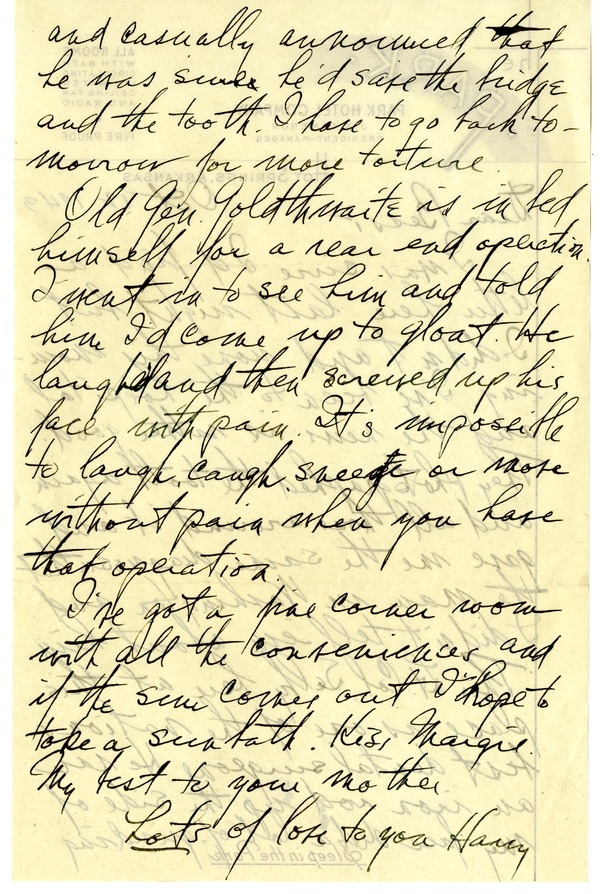 and casually announced that
he was sure he'd save the bridge
and the tooth. I have to go back to-
morrow for more torture.
Old Gen. Goldthwaite is in bed
himself for a rear end operation.
I went in to see him and told
him I'd come up to gloat. He
laughed and then screwed up his
face with pain. It's impossible
to laugh, caugh, sneeze or move
without pain when you have
that operation.
I've got a fine corner room
with all the conveniences and
if the sun comes out I hope to
take a sun bath. Kiss Margie.
My best to your mother
Lots of love to you Harry